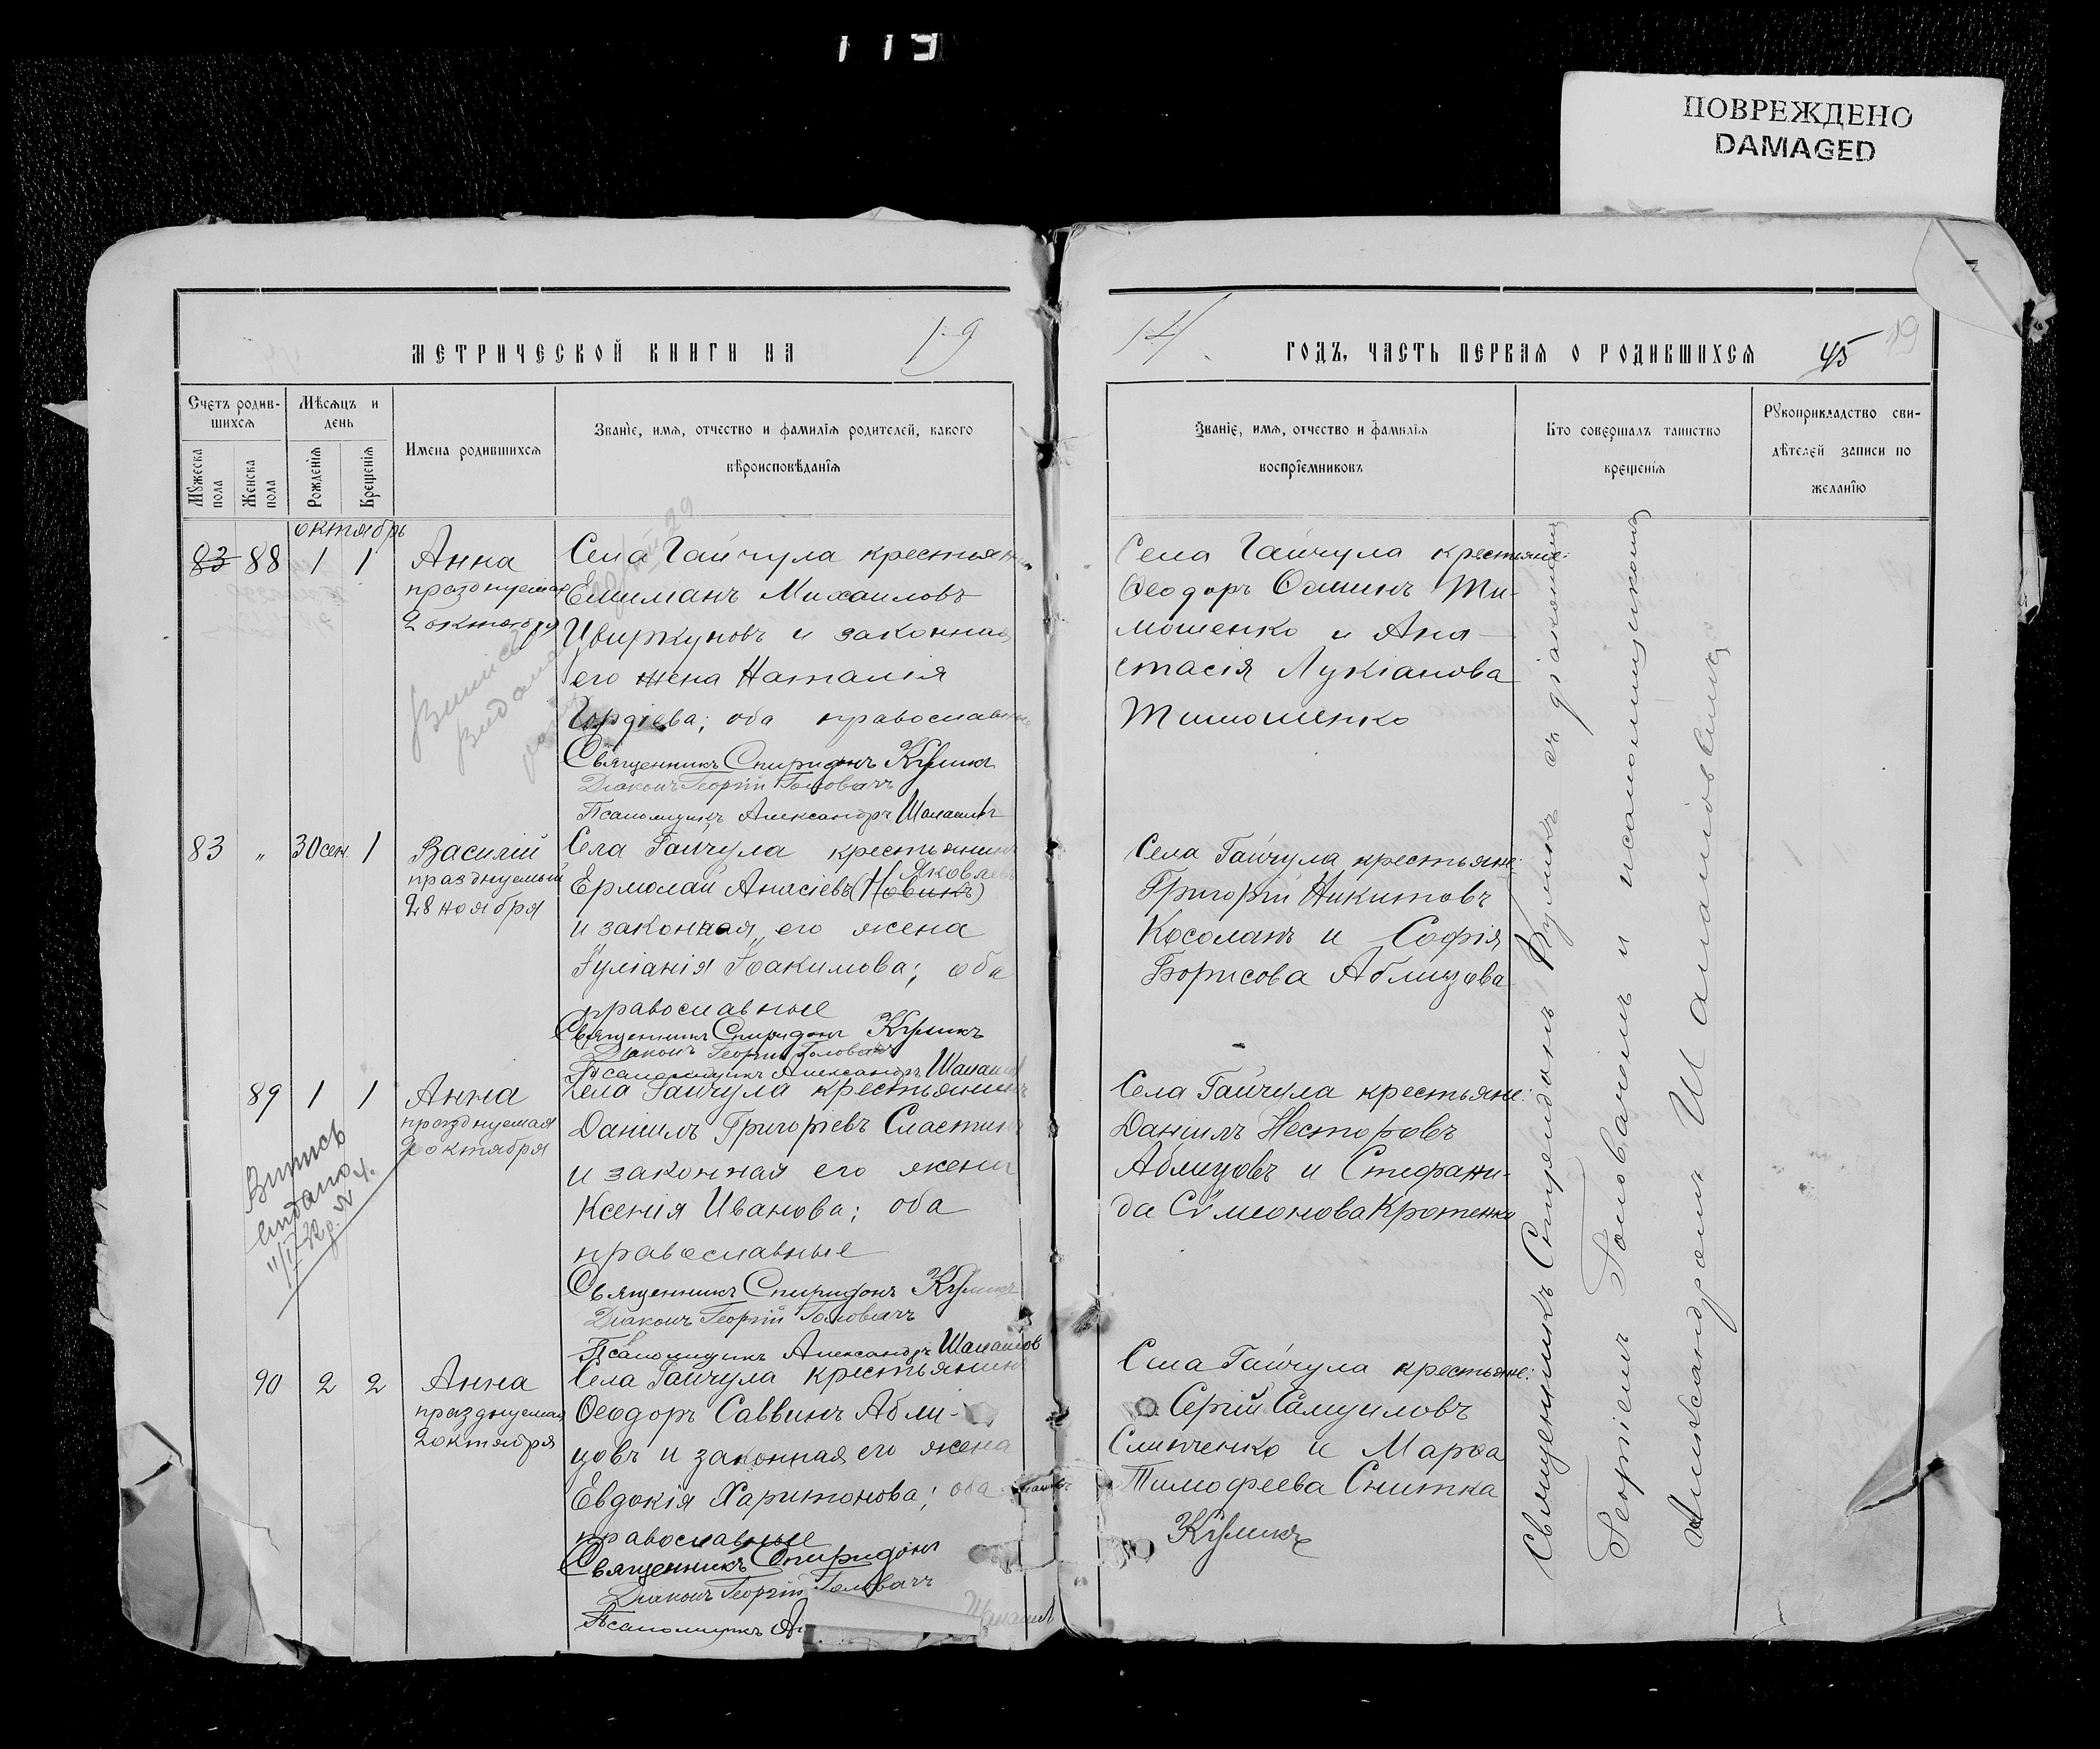 ПОВРЕЖДЕНО
DAMAGED
МЕТРИЧЕСКОЙ КНИГИ НА 19
14 ГОДЪ, ЧАСТЬ ПЕРВАЯ О РОДИВШИХСЯ 45
Счетъ родив-
шихся
Мужеска пола
Женска пола
Мѣсяцъ и
день
Рожденія
Крещенія
Имена родившихся
Званіе, имя, отчество и фамилія родителей, какого
вѣроисповѣданія
Званіе, имя, отчество и фамилія
воспріемниковъ
Кто совершалъ таинство
крещенія
Рукоприкладство сви-
дѣтелей записи по
желанію
октябрь
83 88 1 1
Анна
празднуемая
2 октября
Села Гайчула крестьянин
Емиманъ Михаиловъ
Цвиркуновъ и законная
его жена Наталія
Гордіева; оба православные
Священникъ Спиридонъ Куликъ
Діаконъ Георгій Головачъ
Псаломщикъ Александръ
Села Гайчула крестьяне:
Ѳеодоръ Ѳоминъ Ти-
мошенко и Ана-
стасія Лукіанова
Тимошенко
83 " 30 сен. 1
Василій
празднуемый
28 ноября
Села Гайчула крестьянинъ
Яковлевъ
Ермолай Анисіевъ (Новикъ)
и законная его жена
Іуліанія Іоакимова; оба
православные
Священникъ Спиридонъ Куликъ
Діаконъ Георгій Головачъ
Псаломщикъ Александръ
Села Гайчула крестьяне:
Григорій Никитовъ
Косолапъ и Софія
Борисова Аблицова
89 1 1
Анна
празднуемая
2 октября
Випись
видано
Села Гайчула крестьянинъ
Даніилъ Григоріевъ Сластинъ
и законная его жена
Ксенія Иванова; оба
православные
Священникъ Спиридонъ Куликъ
Діаконъ Георгій Головачъ
Псаломщикъ Александръ
Села Гайчула крестьяне:
Даніилъ Несторовъ
Аблицовъ и Стефани-
да Сѵмеонова Кротенко
90 2 2
Анна
празднуемая
2 октября
Села Гайчула крестьянинъ
Ѳеодоръ Саввинъ Абли-
цовъ и законная его жена
Евдокія Харитонова; оба
православные
Священникъ Спиридонъ Куликъ
Діаконъ Георгій Головачъ
Псаломщикъ
Села Гайчула крестьяне:
Сергій Самуиловъ
Слипченко и Марѳа
Тимоѳеева Снитка
Священникъ Спиридонъ Куликъ съ діакономъ
Георгіемъ Головачомъ и псаломщикомъ
Александромъ